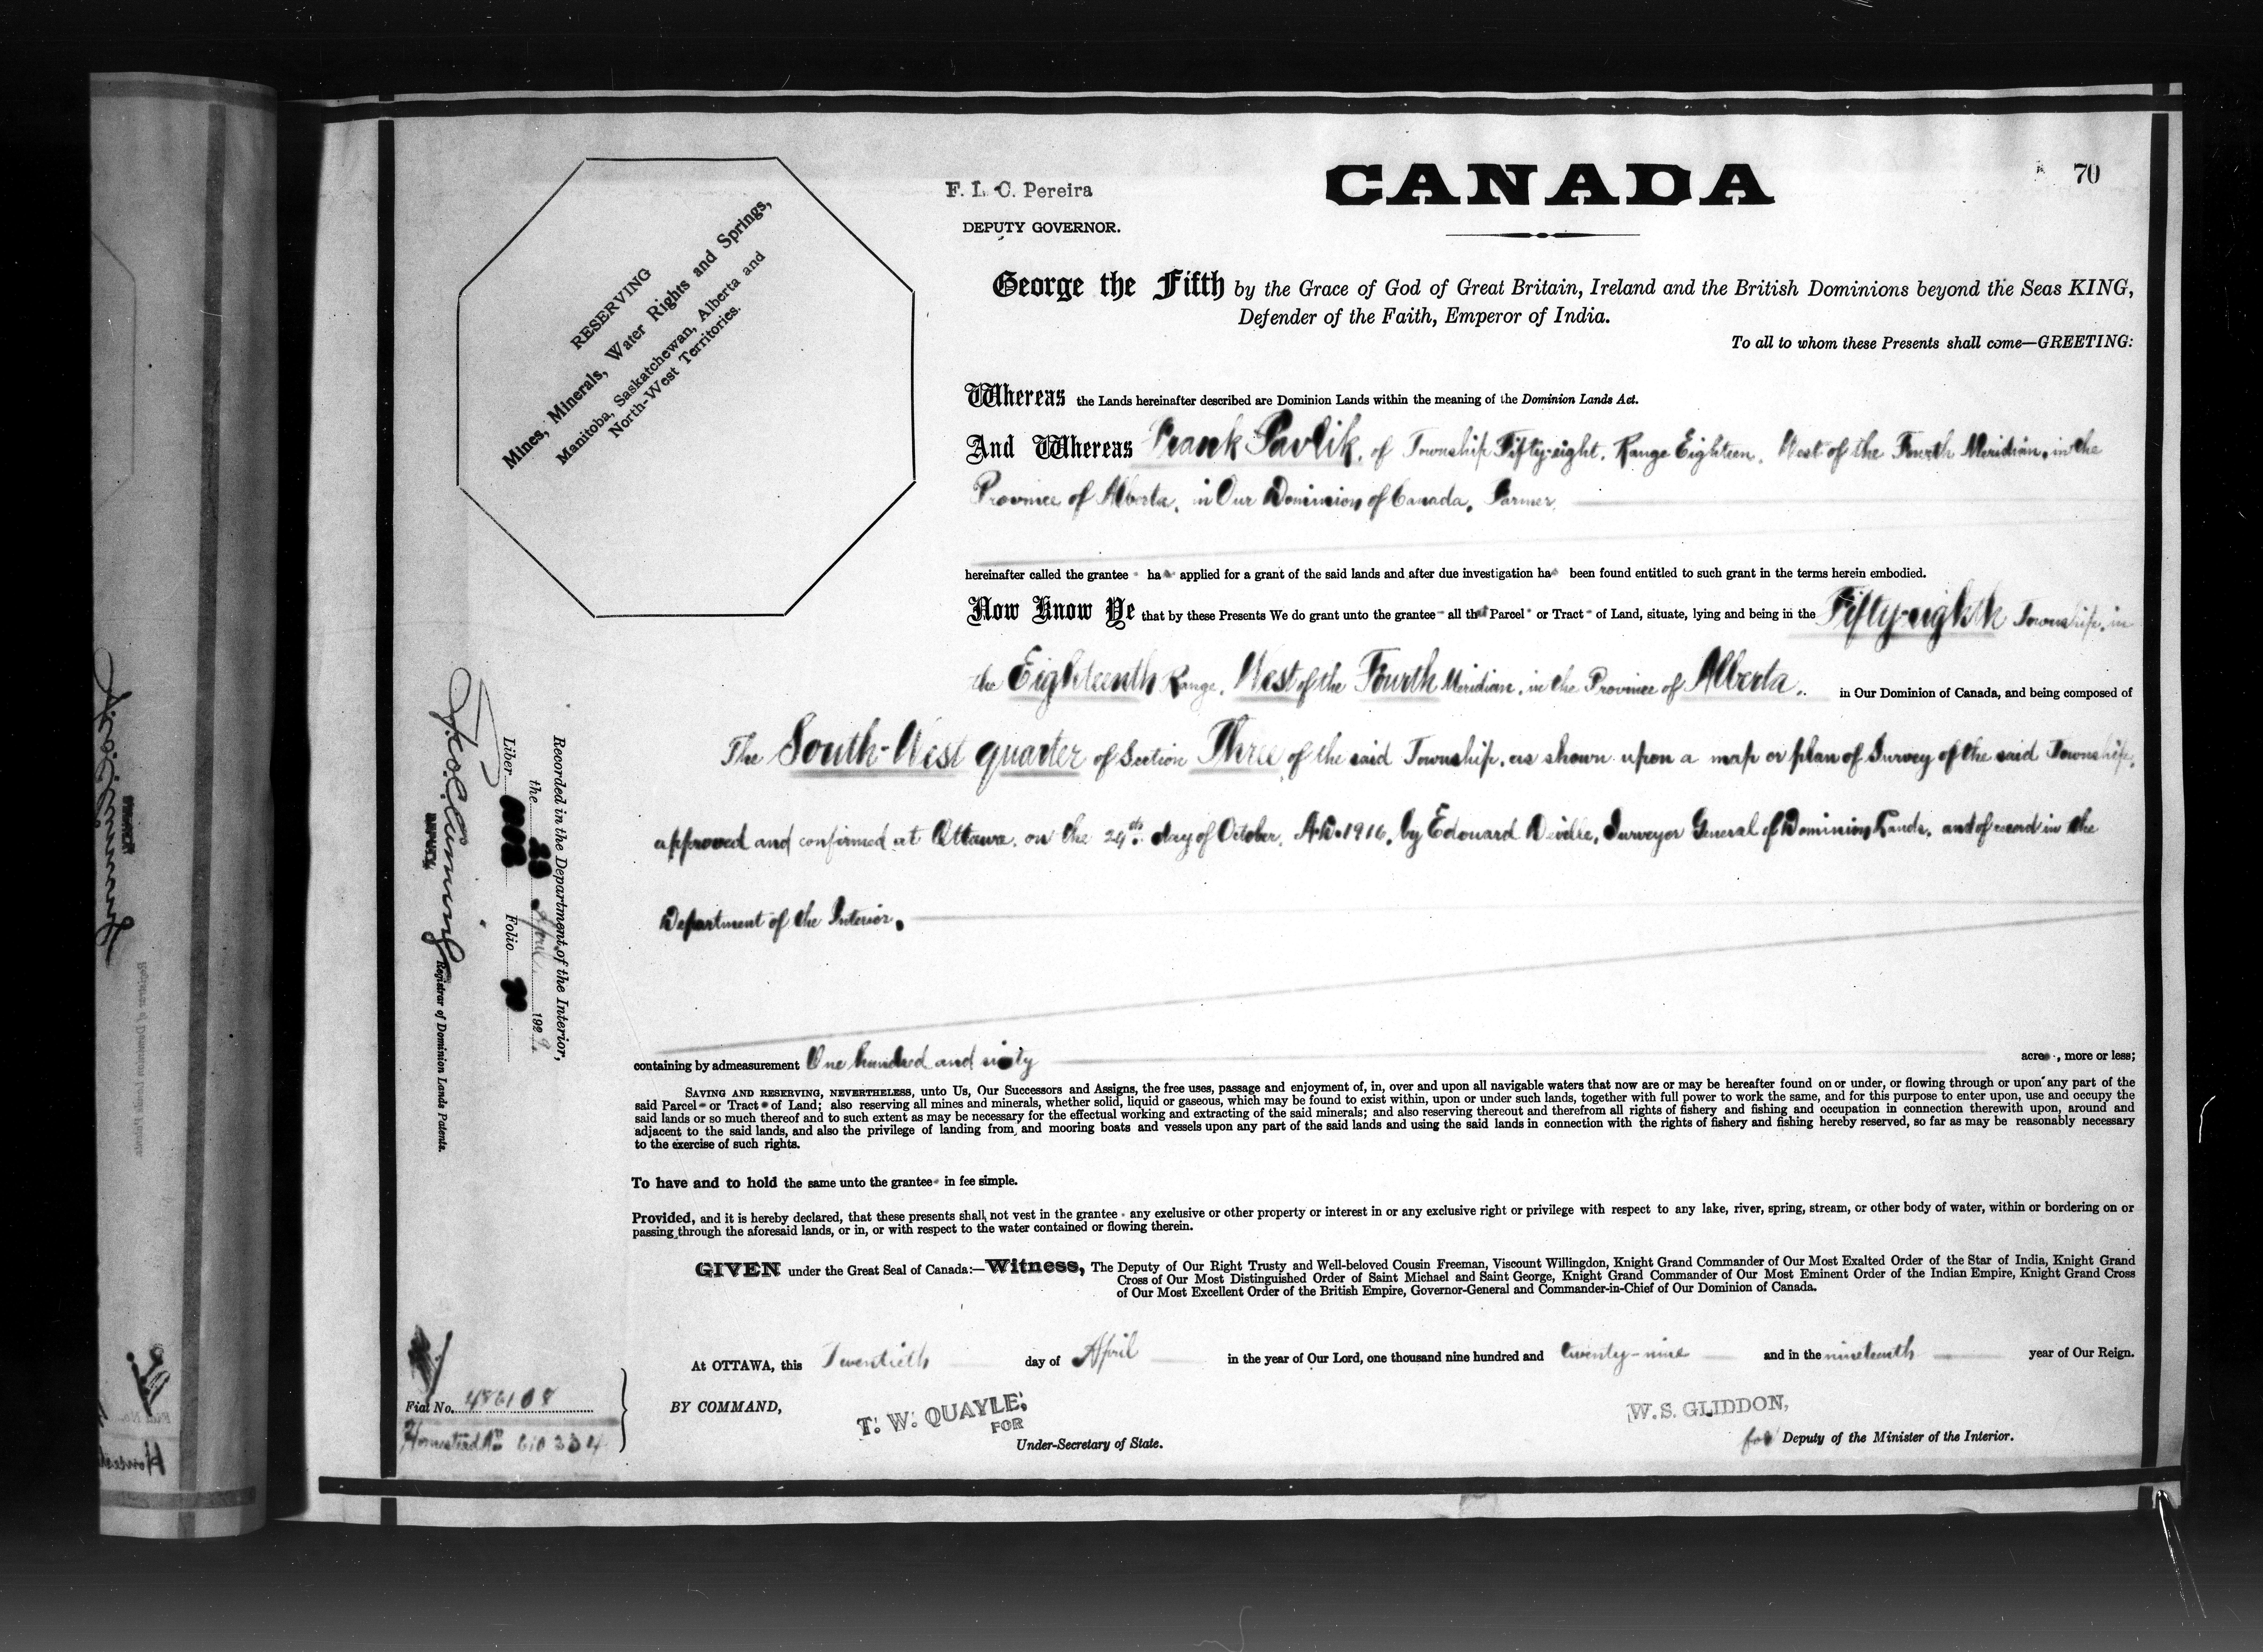 70
CANADA
F. L. C. Pereira
DEPUTY GOVERNOR.
RESERVING
Mines, Minerals, Water Rights and Springs,
Manitoba, Saskatchewan, Alberta and
North-West Territories.
George the Fifth by the Grace of God of Great Britain, Ireland and the British Dominions beyond the Seas KING,
Defender of the Faith, Emperor of India.
To all to whom these Presents shall come—GREETING:
Whereas the Lands hereinafter described are Dominion Lands within the meaning of the Dominion Lands Act.
And Whereas Frank Pavlik, of Township Fifty-eight, Range Eighteen, West of the Fourth Meridian, in the
Province of Alberta, in Our Dominion of Canada, Farmer,
hereinafter called the grantee has applied for a grant of the said lands and after due investigation has been found entitled to such grant in the terms herein embodied.
Now Know Ye that by these Presents We do grant unto the grantee all that Parcel or Tract of Land, situate, lying and being in the Fifty-eighth Township, in
the Eighteenth Range, West of the Fourth Meridian, in the Province of Alberta, in Our Dominion of Canada, and being composed of
The South-West quarter of Section Three of the said Township, as shown upon a map or plan of Survey of the said Township,
approved and confirmed at Ottawa, on the day of October, A.D. 1916, by Edouard Deville, Surveyor General of Dominion Lands, and of record in the
Department of the Interior.
containing by admeasurement One hundred and sixty acres, more or less;
SAVING AND RESERVING, NEVERTHELESS, unto Us, Our Successors and Assigns, the free uses, passage and enjoyment of, in, over and upon all navigable waters that now are or may be hereafter found on or under, or flowing through or upon any part of the
said Parcel or Tract of Land; also reserving all mines and minerals, whether solid, liquid or gaseous, which may be found to exist within, upon or under such lands, together with full power to work the same, and for this purpose to enter upon, use and occupy the
said lands or so much thereof and to such extent as may be necessary for the effectual working and extracting of the said minerals; and also reserving thereout and therefrom all rights of fishery and fishing and occupation in connection therewith upon, around and
adjacent to the said lands, and also the privilege of landing from and mooring boats and vessels upon any part of the said lands and using the said lands in connection with the rights of fishery and fishing hereby reserved, so far as may be reasonably necessary
to the exercise of such rights.
To have and to hold the same unto the grantee in fee simple.
Provided, and it is hereby declared, that these presents shall not vest in the grantee any exclusive or other property or interest in or any exclusive right or privilege with respect to any lake, river, spring, stream, or other body of water, within or bordering on or
passing through the aforesaid lands, or in, or with respect to the water contained or flowing therein.
GIVEN under the Great Seal of Canada:—Witness, The Deputy of Our Right Trusty and Well-beloved Cousin Freeman, Viscount Willingdon, Knight Grand Commander of Our Most Exalted Order of the Star of India, Knight Grand
Cross of Our Most Distinguished Order of Saint Michael and Saint George, Knight Grand Commander of Our Most Eminent Order of the Indian Empire, Knight Grand Cross
of Our Most Excellent Order of the British Empire, Governor-General and Commander-in-Chief of Our Dominion of Canada.
At OTTAWA, this Twentieth day of April in the year of Our Lord, one thousand nine hundred and twenty-nine and in the nineteenth year of Our Reign.
BY COMMAND,
T. W. QUAYLE,
FOR
Under-Secretary of State.
W. S. GLIDDON,
for Deputy of the Minister of the Interior.
Recorded in the Department of the Interior,
the 23 April 1929
Liber Folio 70
DEPUTY
Registrar of Dominion Lands Patents.
Fiat No. 486108
Homestead No.